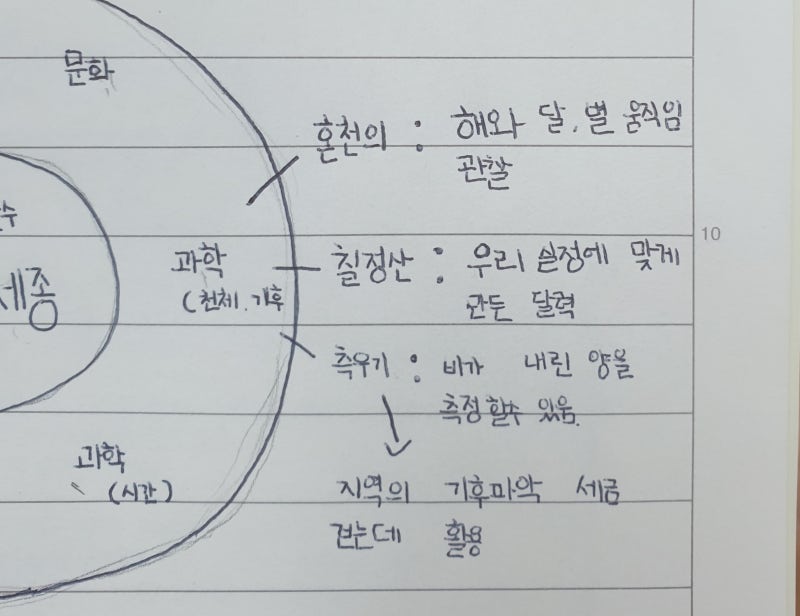 문화
혼천의 : 해와 달, 별 움직임
관찰
과학
(천체, 기후
칠정산 : 우리 실정에 맞게
만든 달력
세종
측우기 : 비가 내린 양을
측정할수 있음.
과학
(시간)
지역의 기후파악 세금
걷는데 활용
10